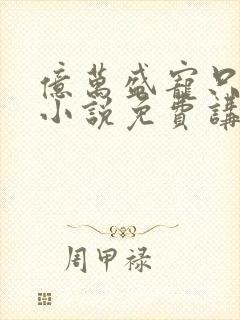 億萬盛寵只
小說免費講
周甲禄